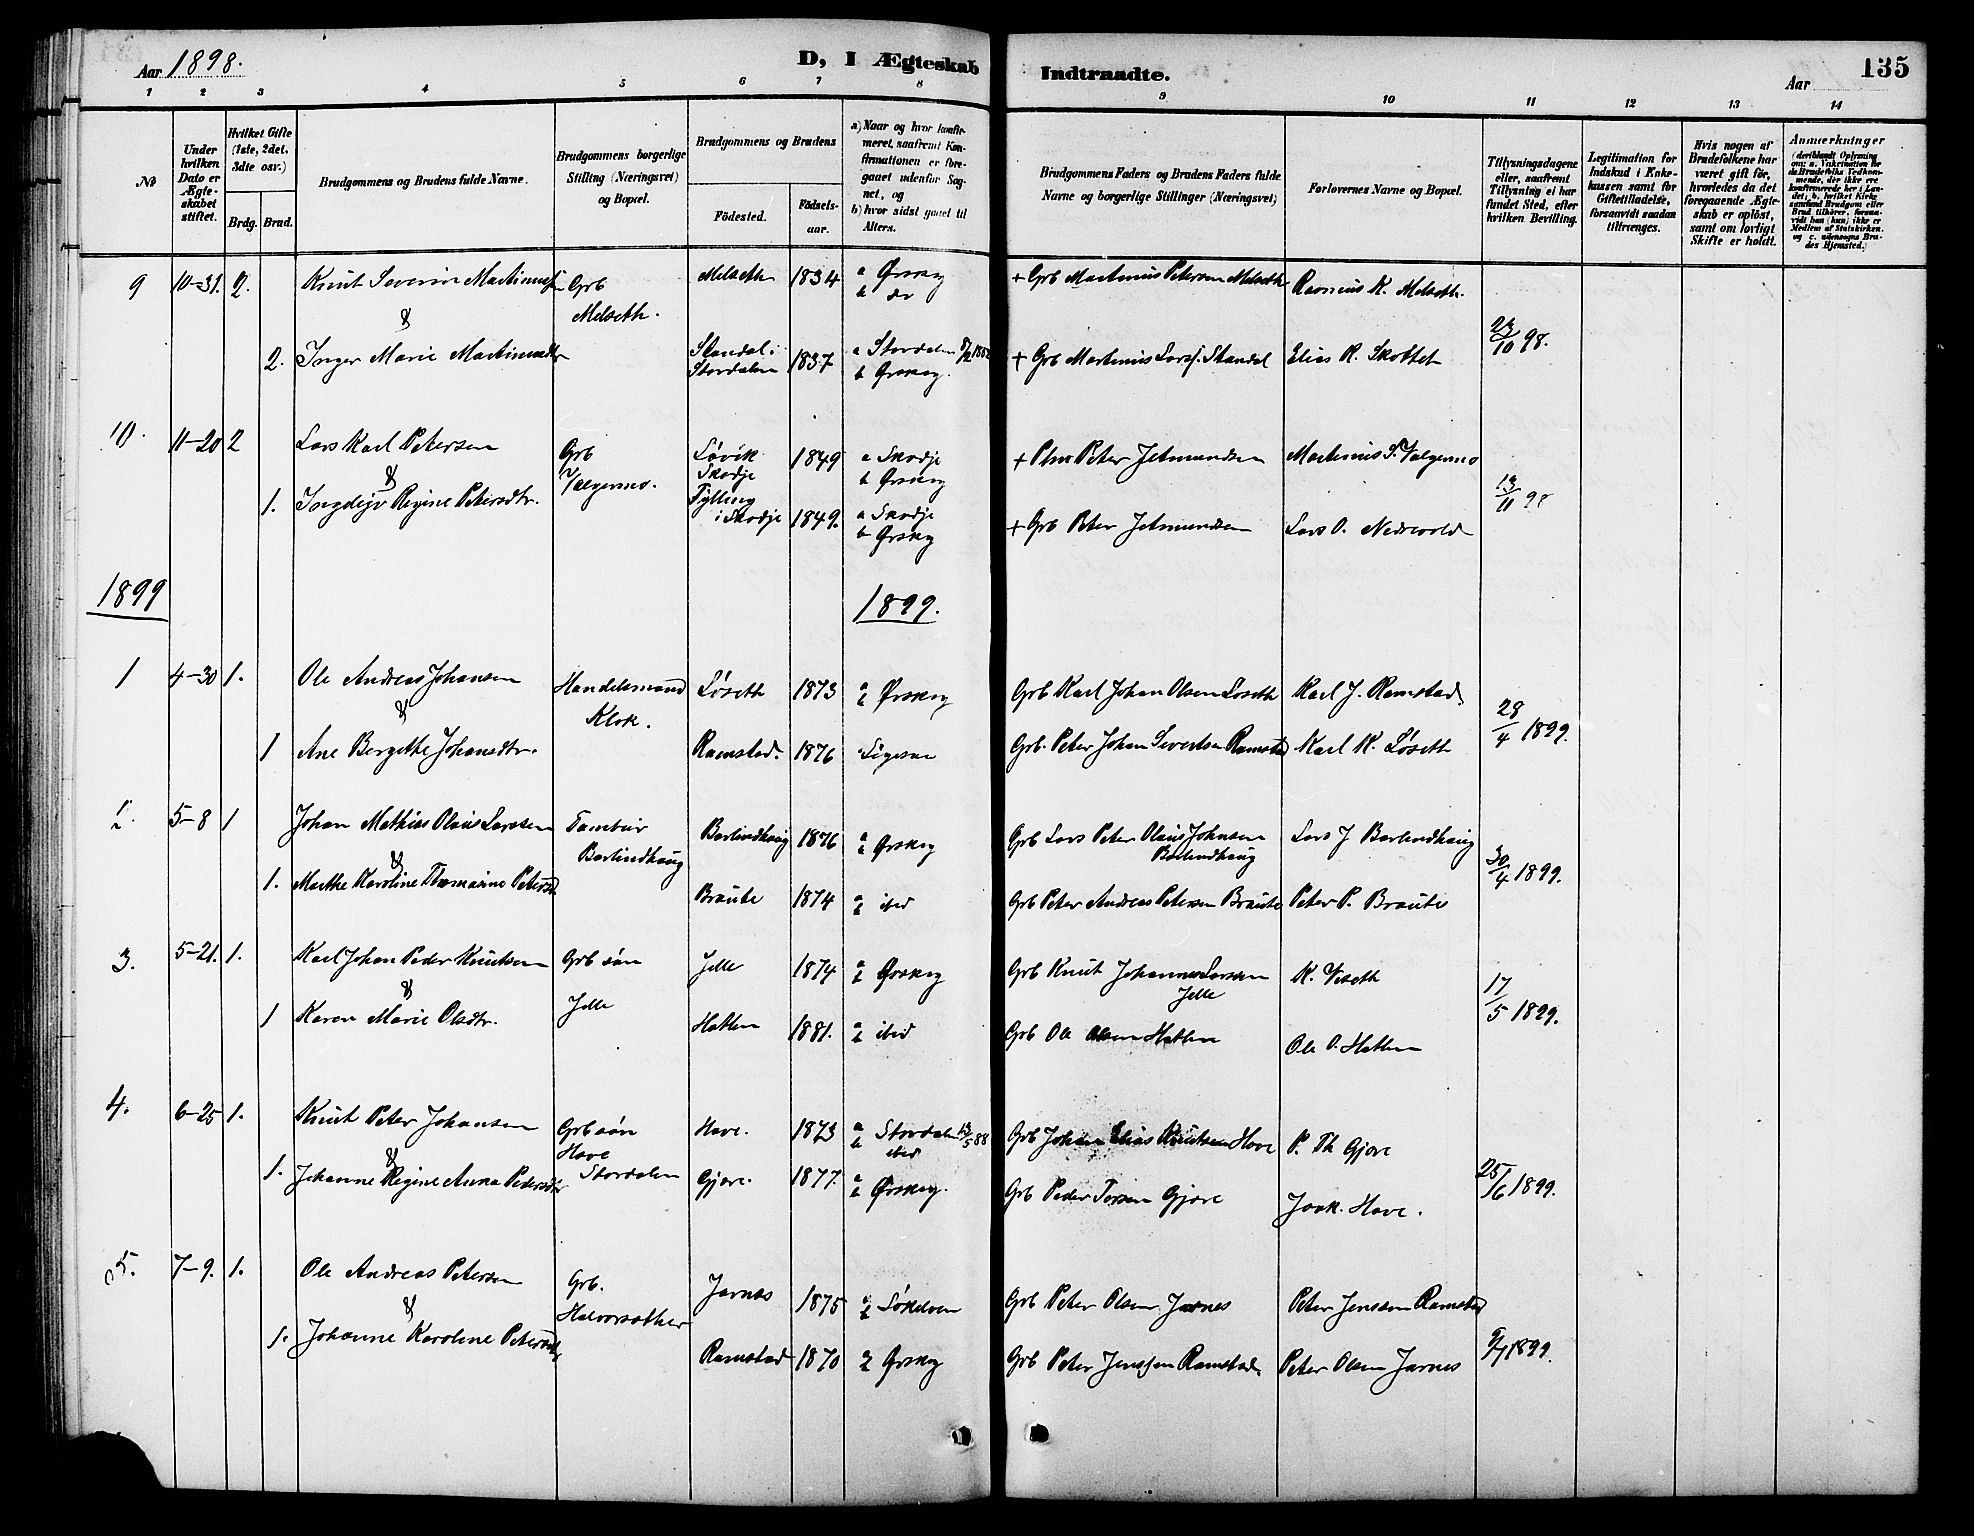 Aar 1898.
D, I Ægteskab
Indtraadte.
Aar
135
1 2 3 4 5 6 7 8 9 10 11 12 13 14
No
Under hvilken Dato er Ægteskabet stiftet.
Hvilket Gifte (1ste, 2det, 3die osv.)
Brdg. Brud.
Brudgommens og Brudens fulde Navne.
Brudgommens borgerlige Stilling (Næringsvei) og Bopæl.
Brudgommens og Brudens
Fødested.
Fødselsaar.
a) Naar og hvor konfirmeret, saafremt Konfirmationen er foregaaet udenfor Sognet, og
b) hvor sidst gaaet til Alters.
Brudgommens Faders og Brudens Faders fulde Navne og borgerlige Stillinger (Næringsvei)
Forlovernes Navne og Bopæl.
Tillysningsdagene eller, saafremt Tillysning ei har fundet Sted, efter hvilken Bevilling.
Legitimation for Indskud i Enkekassen samt for Giftetilladelse, forsaavidt saadan tiltrænges.
Hvis nogen af Brudefolkene har været gift før, hvorledes da det foregaaende Ægteskab er opløst, samt om lovligt Skifte er holdt.
Anmærkninger
9 10-31. 2. Knut Severin Martinussen Grb Melseth. Melseth 1834 a Ørskog b do + Grb Martinus Petersen Melseth Rasmus K. Melseth.
&
23/10 98.
2. Inger Marie Martinusdtr Standal i Stordalen 1837 a Stordalen b Ørskog. + Grb Martinus Larss. Standal Elias R. Skottet
10. 11-20 2 Lars Karl Petersen Grb Valgermo. Løvik Skodje 1849 a Skodje b Ørskog + Plm Peter Jetmundsen Martinus S. Valgermo
&
13/11 98
1. Ingeleiv Regine Petersdtr. Fylling i Skodje 1849. a Skodje b Ørskog + Grb Peter Jetmundsen Lars O. Nedrevold
1899 1899.
1 4-30 1. Ole Andreas Johansen Handelsmand Klok. Løseth 1873 a b Ørskog Grb Karl Johan Olsen Løseth Karl J. Ramstad.
&
28/4 1899.
1 Ane Bergithe Johansdtr. Ramstad. 1876 Ligesaa Grb. Peter Johan Severtsen Ramstad Karl K. Løseth
2. 5-8 1 Johan Mathias Olaus Larssen Tambur Barlindhaug Barlindhaug 1876 a b Ørskog Grb Lars Peter Olaus Johnsen Barlindhaug Lars J Barlindhaug
&
30/4 1899.
1. Marthe Karoline Thomasine Petersd Braute 1874 a b ibid Grb Peter Andreas Petersen Braute Peter P. Braute
3. 5-21. 1. Karl Johan Peder Knutsen Grb søn Jelle Jelle 1874 a b Ørskog Grb Knut Johannes Larssen Jelle K. Viseth
&
17/5 1899.
1 Karen Marie Olsdtr. Hatlen 1881. a b ibid Grb Ole Olsen Hatlen Ole O. Hatlen
4. 6-25 1. Knut Peter Johansen Grb søn Hove Stordalen Hove. 1873 a Stordalen 13/5 88 b ibid Grb Johan Elias Knutsen Hove P. Th Gjøre
&
25/6 1899.
1. Johanne Regine Anna Pedersdtr Gjøre. 1877. a b Ørskog. Grb Peder Torsen Gjøre Joak. Hove.
5. 7-9. 1. Ole Andreas Petersen Grb. Halvorsæther Jarnes 1875 a b Søkelven Grb Peter Olsen Jarnes Peter Jenssen Ramstad
&
9/7 1899.
1. Johanne Karoline Petersdtr Ramstad 1870 a b Ørskog Grb Peter Jenssen Ramstad. Peter Olsen Jarnes